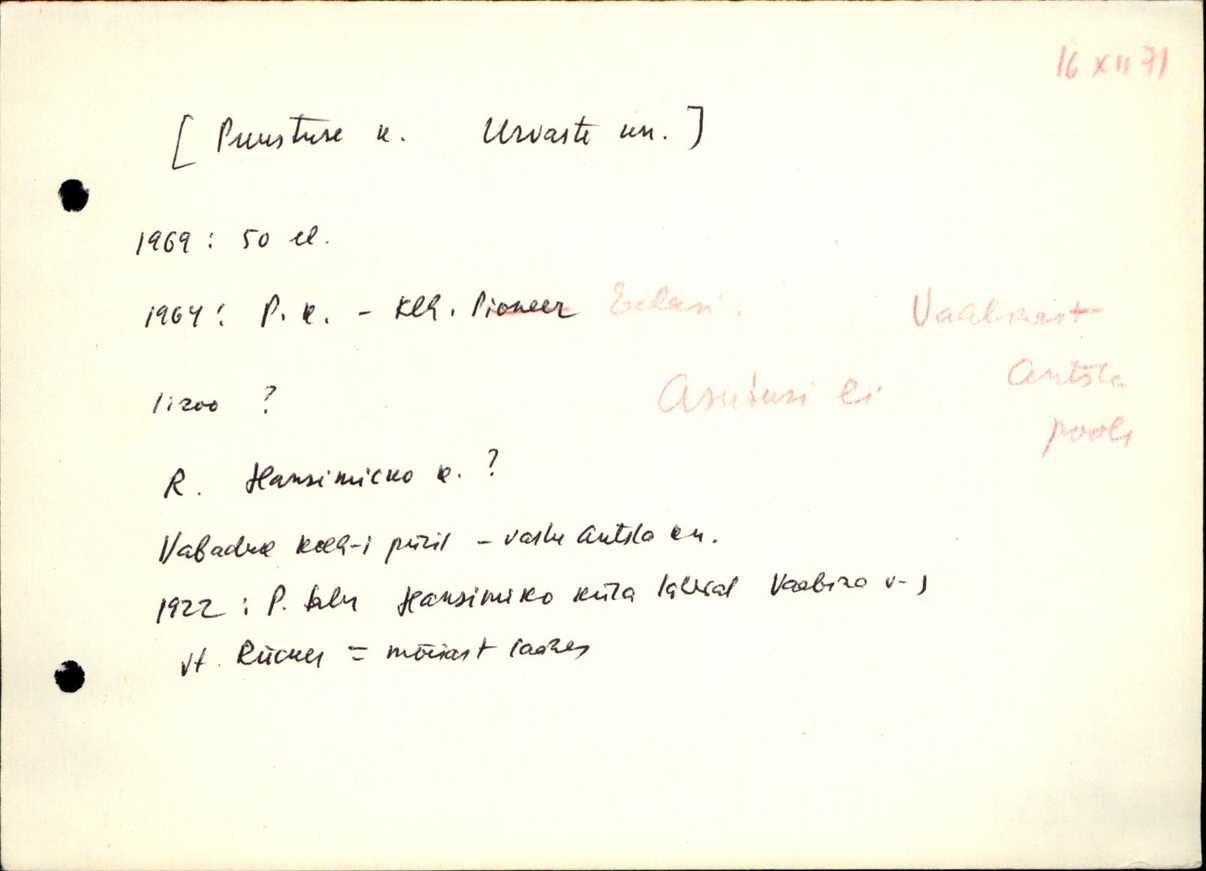 16 XII 71
[ Puustuse k. Urvaste kn. ]
1969 : 50 el.
1964 : P. k. – Klh. Pioneer Edasi. Vaabinast
1:200 ? Asutusi ei Antsla
poole
R. Hansimicko k. ?
Vabaduse kolh-i piiril – vastu Antsla kn.
1922 : P. talu Hansimiko küla lähedal Vaabina v-s
vt. Rücker = mõisast läänes